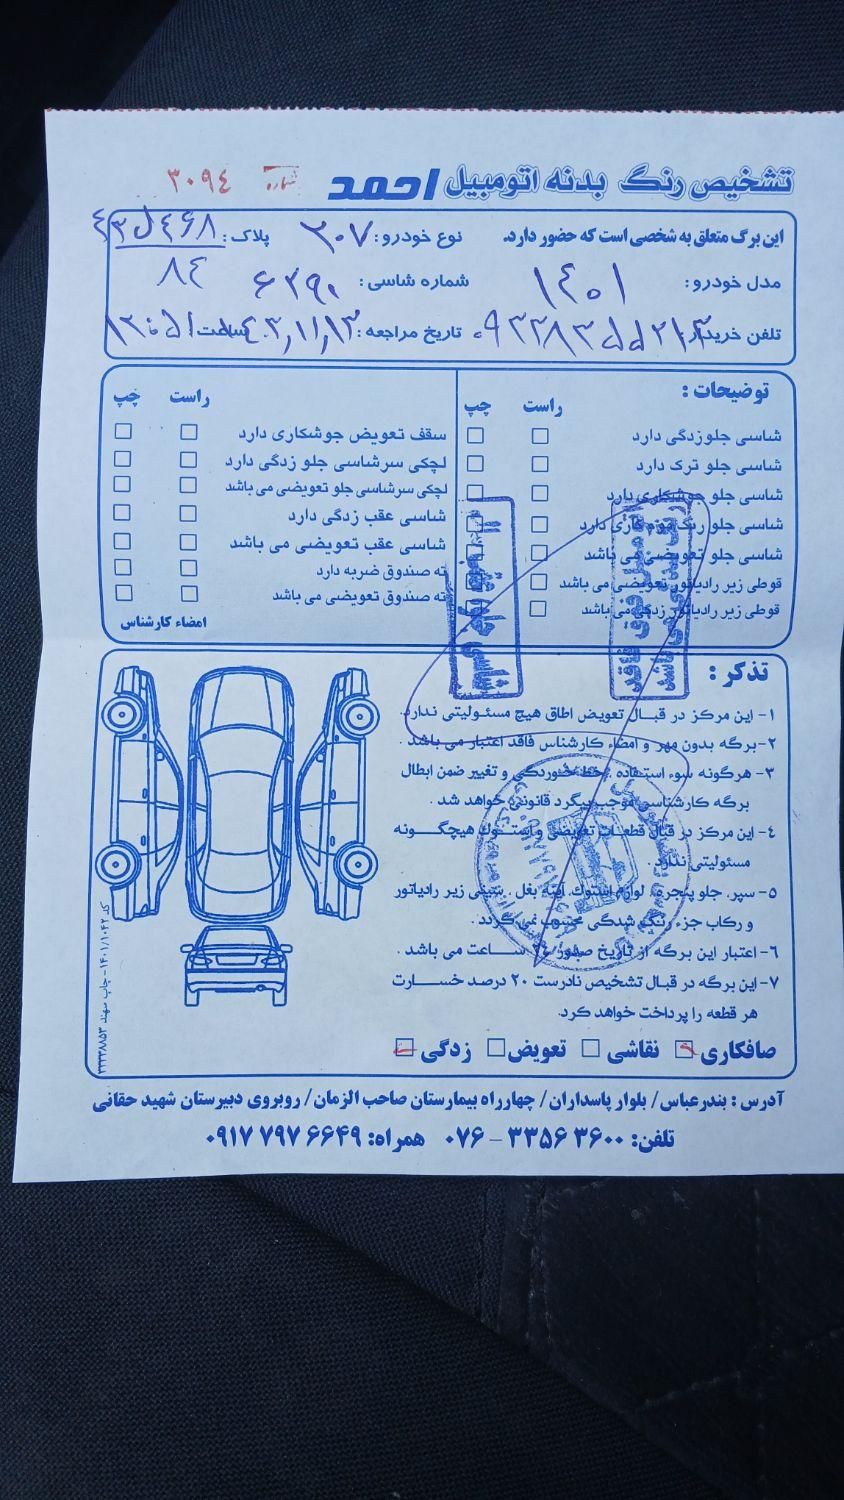 تشخیص رنگ بدنه اتومبیل احمد شماره ۳۰۹۴
این برگ متعلق به شخصی است که حضور دارد. نوع خودرو: ۲۰۷ پلاک: ۴۳ل۴۶۸
۸۴
مدل خودرو: ۱۴۰۱ شماره شاسی: ۶۲۹۰
تلفن خریدار: تاریخ مراجعه: ساعت
توضیحات: راست چپ
راست چپ
شاسی جلوزدگی دارد
شاسی جلو ترک دارد
شاسی جلو جوشکاری دارد
شاسی جلو رنگ دارد
شاسی جلو تعویضی می باشد
قوطی زیر رادیاتور تعویضی می باشد
قوطی زیر رادیاتور زدگی می باشد
سقف تعویض جوشکاری دارد
لچکی سرشاسی جلو زدگی دارد
لچکی سرشاسی جلو تعویضی می باشد
شاسی عقب زدگی دارد
شاسی عقب تعویضی می باشد
ته صندوق ضربه دارد
ته صندوق تعویضی می باشد
امضاء کارشناس
اتومبیل فوق فاقد
رنگ شدگی می باشد
شاسی جلو و عقب
تذکر:
۱- این مرکز در قبال تعویض اطاق هیچ مسئولیتی ندارد.
۲- برگه بدون مهر و امضاء کارشناس فاقد اعتبار می باشد.
۳- هرگونه سوء استفاده، خط خوردگی و تغییر ضمن ابطال
برگه کارشناسی موجب پیگرد قانونی خواهد شد.
۴- این مرکز در قبال قطعات تعویضی و استوک هیچگونه
مسئولیتی ندارد.
۵- سپر، جلو پنجره، لوازم استوک، آینه بغل، سینی زیر رادیاتور
و رکاب جزء رنگ شدگی محسوب نمی گردد.
۶- اعتبار این برگه از تاریخ صدور ۲۴ ساعت می باشد.
۷- این برگه در قبال تشخیص نادرست ۲۰ درصد خسارت
هر قطعه را پرداخت خواهد کرد.
صافکاری نقاشی تعویض زدگی
کد ۱۴۰۱/۱۰۴۲ - چاپ سهند ۳۳۳۳۸۸۵۳
آدرس: بندرعباس/ بلوار پاسداران/ چهارراه بیمارستان صاحب الزمان/ روبروی دبیرستان شهید حقانی
تلفن: ۳۳۵۶۳۶۰۰ - ۰۷۶ همراه: ۰۹۱۷۷۹۷۶۶۴۹